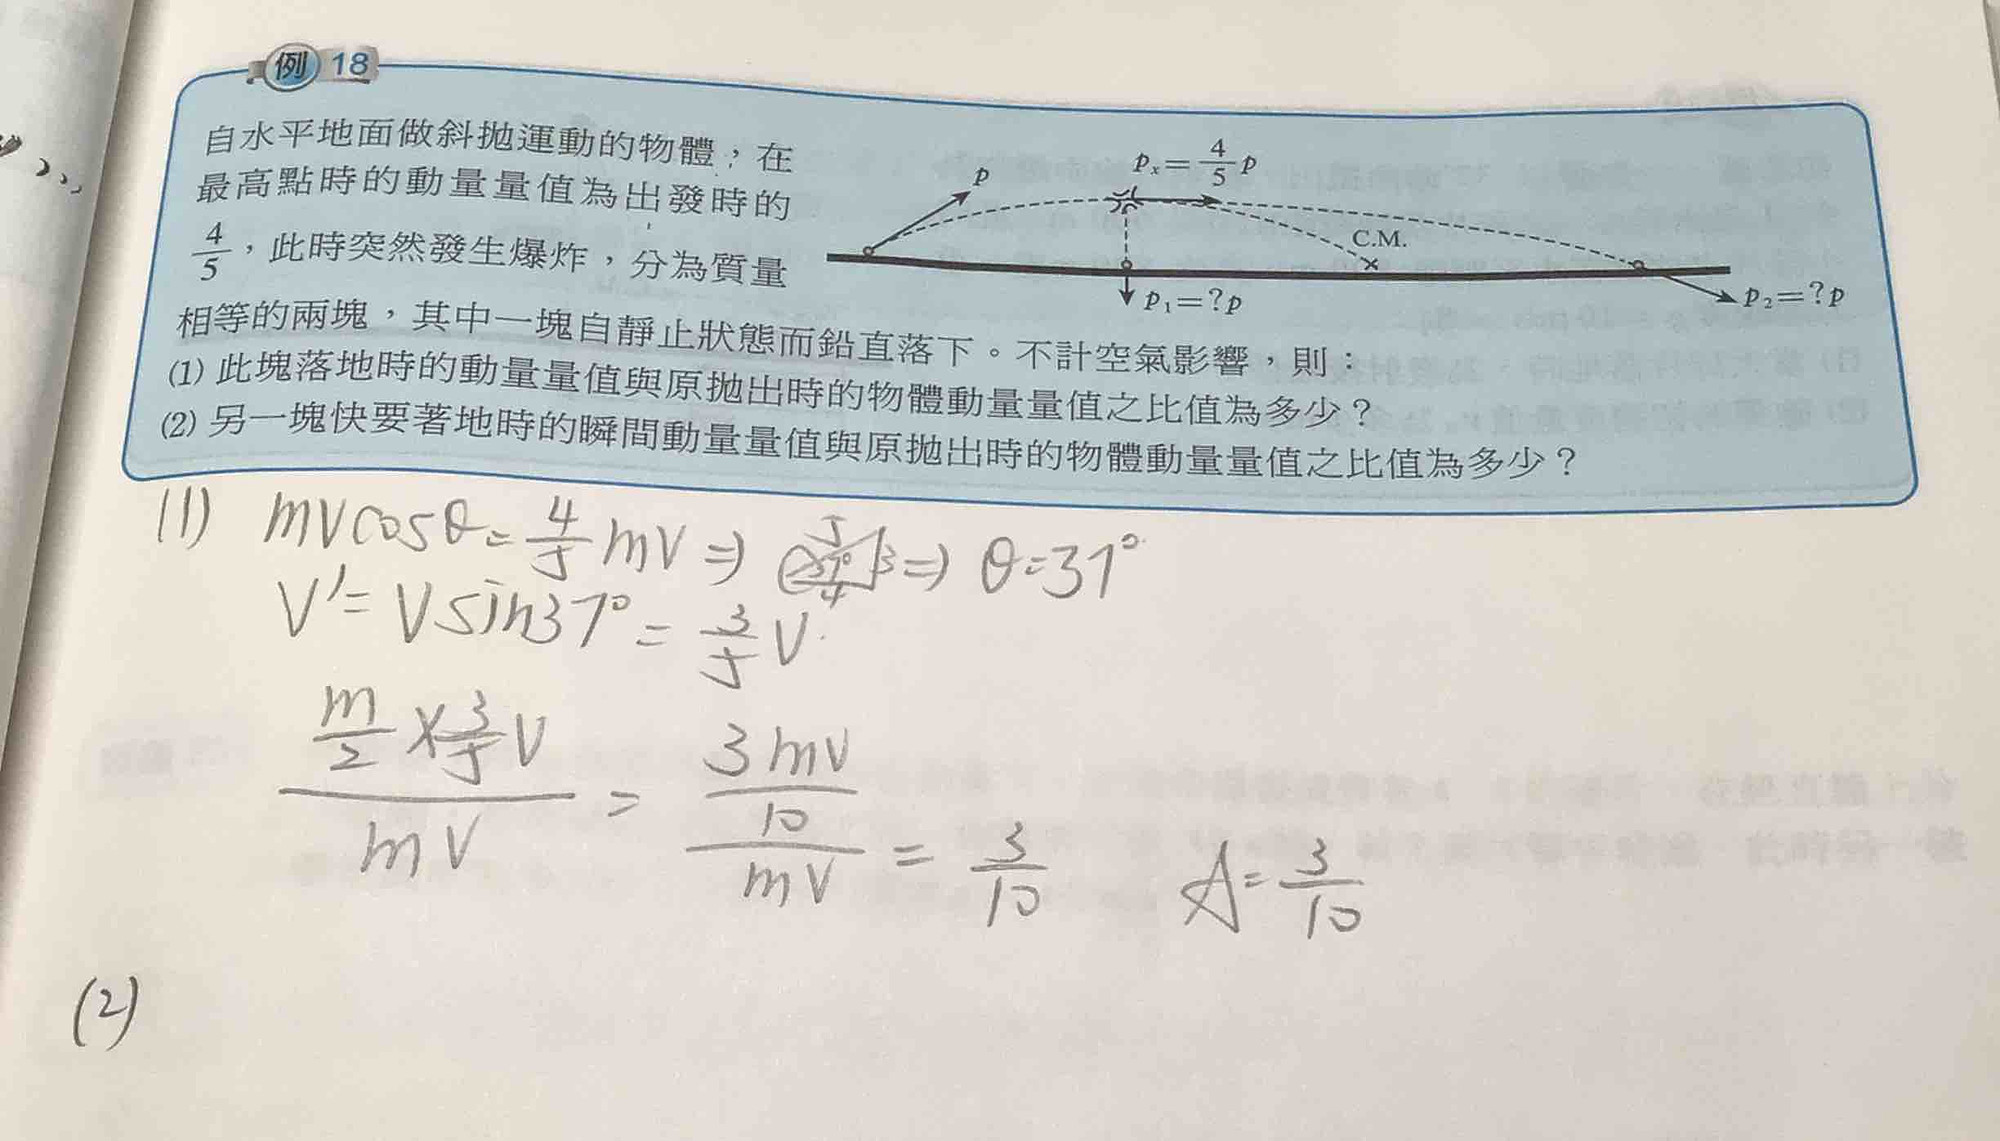 例 18
自水平地面做斜拋運動的物體，在
最高點時的動量量值為出發時的
4/5，此時突然發生爆炸，分為質量
相等的兩塊，其中一塊自靜止狀態而鉛直落下。不計空氣影響，則：
(1) 此塊落地時的動量量值與原拋出時的物體動量量值之比值為多少？
(2) 另一塊快要著地時的瞬間動量量值與原拋出時的物體動量量值之比值為多少？
p
pₓ=4/5 p
C.M.
p₁=?p
p₂=?p
(1) mvcosθ=4/5 mv ⇒ 5 3 4 ⇒ θ=37°
V'=Vsin37°=3/5 V
(m/2 × 3/5 V)/(mV) = (3mV/10)/(mV) = 3/10 A=3/10
(2)